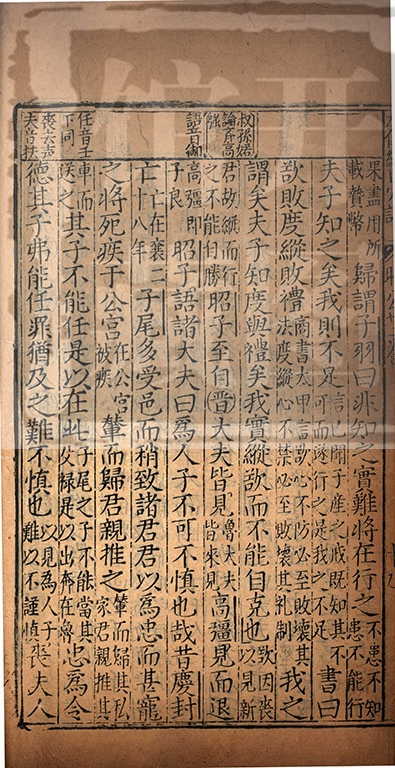 果盡用所載贄幣歸謂子羽曰非知之實難將在行之不患不知患不能行
夫子知之矣我則不足言已聞子產之戒既知其不可而遂行之是我之不足書曰
欲敗度縱敗禮商書太甲言欲心不防必至敗壞其法度縱心不禁必至敗壞其禮制我之
謂矣夫子知度與禮矣我實縱欲而不能自克也欲因喪以見新
叔孫婼論齊高彊
君故縱而行之不能自勝昭子至自晉大夫皆見魯大夫皆來見高彊見而退
語音御
高彊即子良昭子語諸大夫曰為人子不可不慎也哉昔慶封
亡亡在襄二十八年子尾多受邑而稍致諸君君以為忠而甚寵
之將死疾于公宮在公宮被疾輦而歸君親推之輦而歸其私家君親推其
任音壬下同
車而其子不能任是以在此子尾之子不能當其父祿是以出奔在魯忠為令
喪去聲夫音扶
德其子弗能任罪猶及之難不慎也以見為人子難以不謹慎喪夫人